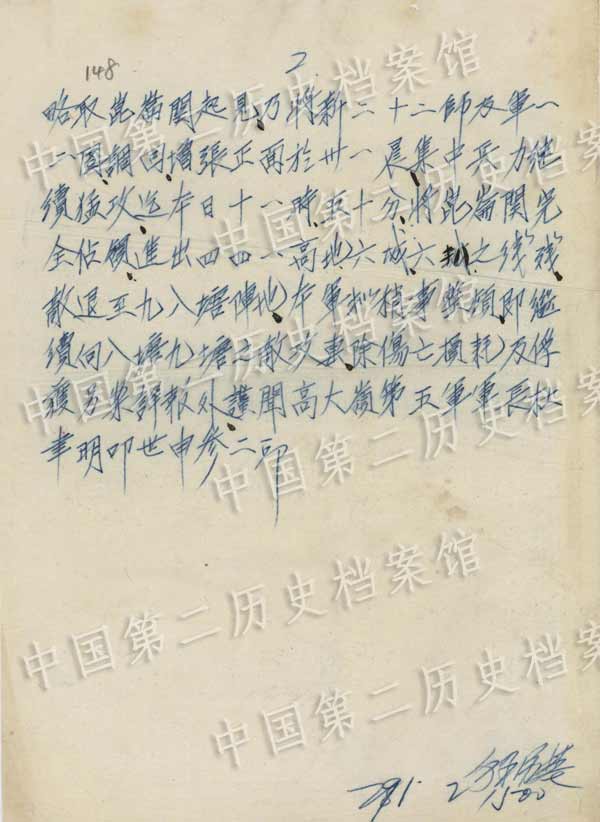 148
2
略取崑崙関起見乃將新二十二師及軍一
一團調回增張正面於卅一晨集中兵力继
續猛攻迄本日十一時五十分將崑崙関完
全佔領進出四四一高地六城六之线残
敵退至九八塘陣地本軍稍事整頓即継
續向八塘九塘之敵攻擊除傷亡損耗及俘
獲另案詳報外謹聞高大嶺第五軍軍長杜
聿明叩世申参二印
中国第二历史档案馆
中国第二历史档案馆
中国第二历史档案馆
中国第二历史档案馆
中国第二历史档案馆
中国第二历史档案馆
29/1. 2